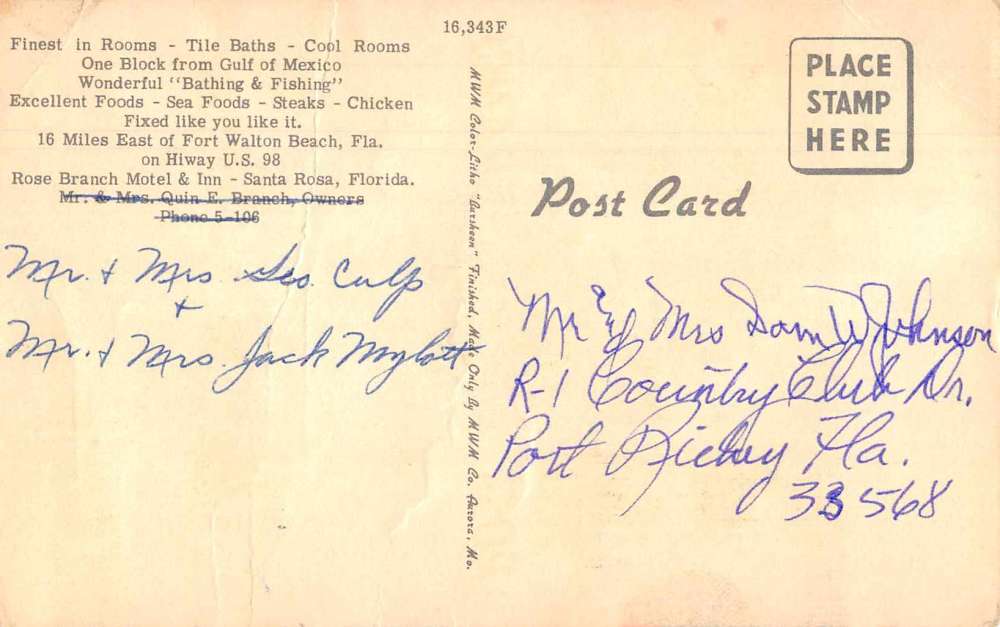 16,343F
Finest in Rooms - Tile Baths - Cool Rooms
One Block from Gulf of Mexico
Wonderful "Bathing & Fishing"
Excellent Foods - Sea Foods - Steaks - Chicken
Fixed like you like it.
16 Miles East of Fort Walton Beach, Fla.
on Hiway U.S. 98
Rose Branch Motel & Inn - Santa Rosa, Florida.
Mr. & Mrs. Quin E. Branch, Owners
Phone 5-106
Mr. + Mrs. Geo. Culp
+
Mr. + Mrs. Jack Mylott
MWM Color-Litho "Aursheen" Finished, Made Only By MWM Co. Aurora, Mo.
PLACE
STAMP
HERE
Post Card
Mr & Mrs Sam W Johnson
R-1 Country Club Dr.
Port Richey Fla.
33568